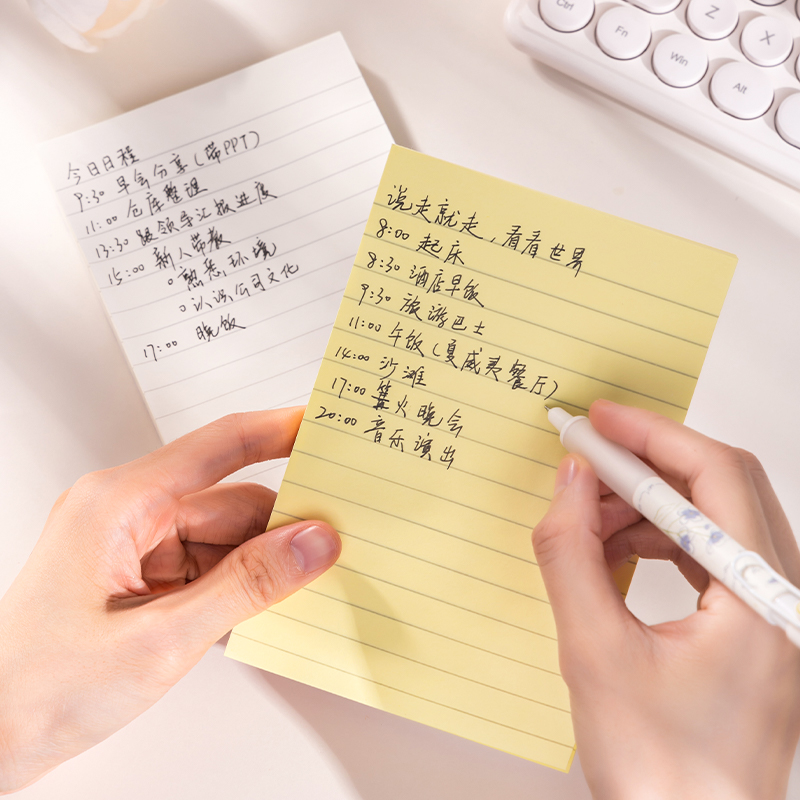 今日日程
9:30 早会分享(带PPT)
11:00 仓库整理
13:30 跟领导汇报进度
15:00 新人带教
○熟悉环境
○认识公司文化
17:00 晚饭
说走就走,看看世界
8:00 起床
8:30 酒店早饭
9:30 旅游巴士
11:00 午饭(夏威夷餐厅)
14:00 沙滩
17:00 篝火晚会
20:00 音乐演出
Ctrl
Fn
Win
Alt
Z
X